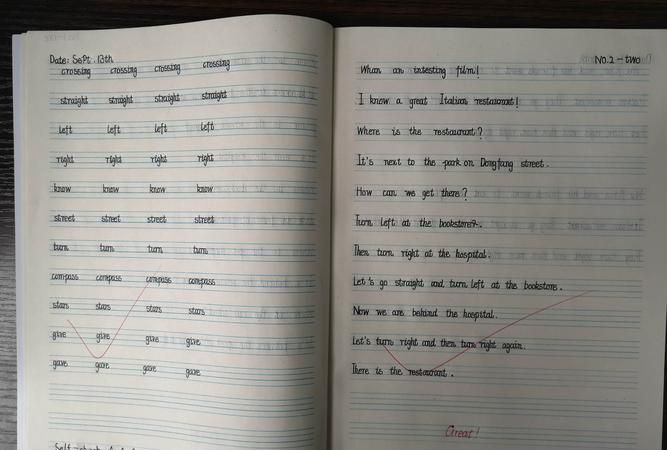 Date: Sept. 13th
crossing crossing crossing crossing
straight straight straight straight
left left left left
right right right right
know know know know
street street street street
turn turn turn turn
compass compass compass compass
stars stars stars stars
give give give give
gave gave gave gave
No.2-two
Whan an intesting film!
I know a great Italian restaurant!
Where is the restaurant?
It's next to the park on Dongfang street.
How can we get there?
Turn left at the bookstore.
Then turn right at the hospital.
Let's go straight and turn left at the bookstore.
Now we are behind the hospital.
Let's turn right and then turn right again.
There is the restaurant.
Great!